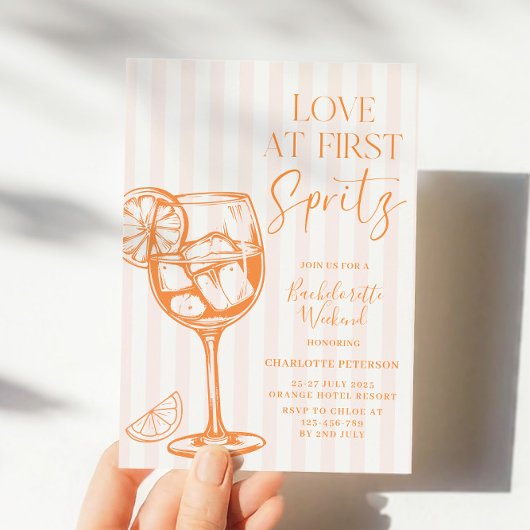 LOVE
AT FIRST
Spritz
JOIN US FOR A
Bachelorette
Weekend
HONORING
CHARLOTTE PETERSON
25-27 JULY 2025
ORANGE HOTEL RESORT
RSVP TO CHLOE AT
123-456-789
BY 2ND JULY